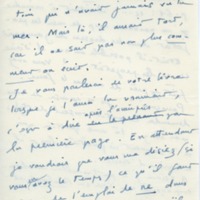 tion qui n'avait jamais vu la
mer. Mais là, il aurait tort,
car il ne sait pas non plus com-
ment on écrit.
Je vous parlerai de votre livre
lorsque je l'aurai lu vraiment,
c'est à dire
la première page. En attendant
je voudrais que vous me disiez (si
vous avez le temps) ce qu'il faut
l'emploi de ne dans